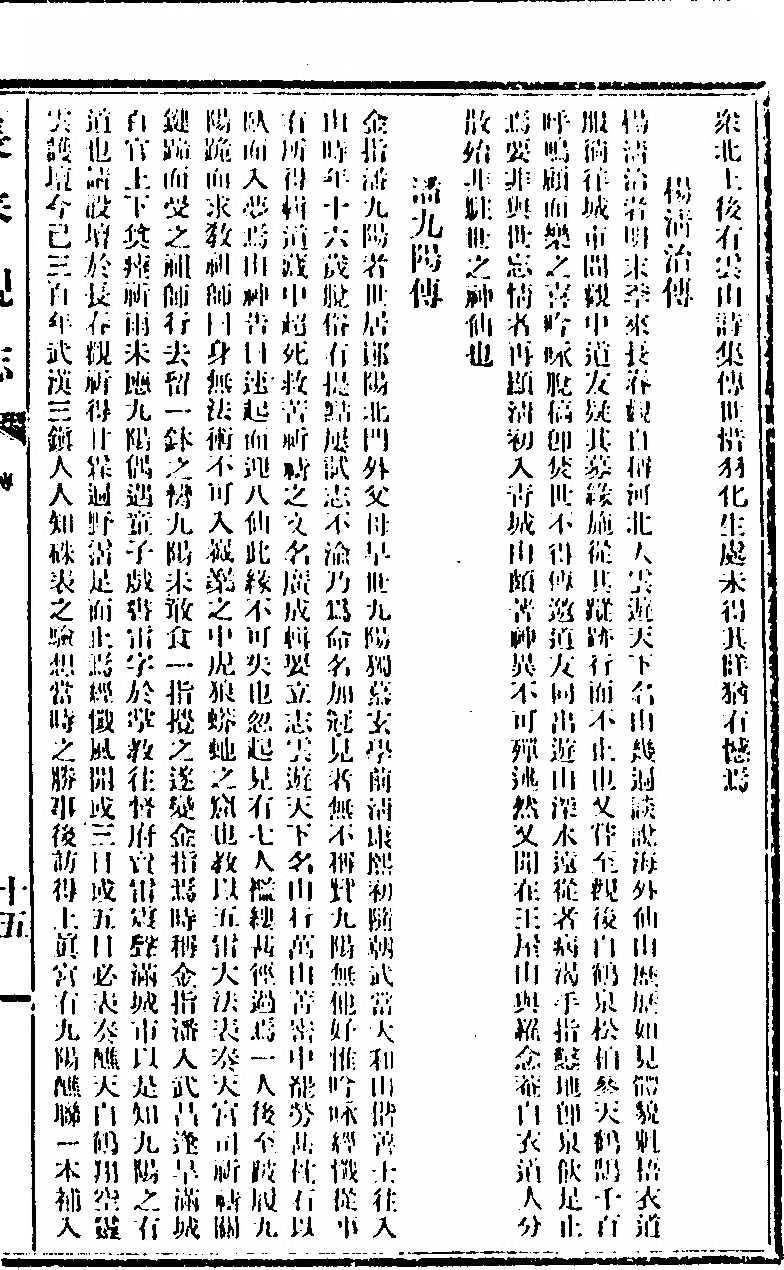 衆北上後有雲山詩集傳世惜羽化生處未得其詳猶有憾焉
楊清治傳
楊清治者明末季來長春觀自稱河北人雲遊天下名山幾過談說海外仙山歷歷如見體貌魁梧衣道
服徜徉城市間觀中道友疑其募緣施從其蹤跡行而不止也又嘗至觀後白鶴泉松柏參天鶴鵲千百
呼鳴顧而樂之喜吟咏脫稿即焚世不得傳邀道友同出遊山深水遠從者病渴手指憩地即泉飲足止
焉要非與世忘情者再顯清初入青城山頗著神異不可殫述然又聞在王屋山與羅念菴白衣道人分
散殆非駐世之神仙也
潘九陽傳
金指潘九陽者世居鄖陽北門外父母早世九陽獨慕玄學前清康熙初隨朝武當太和山偕善士往入
山時年十六歲脫俗有提點屢試志不渝乃爲命名加冠見者無不稱賢九陽無他好惟吟咏經懺從事
有所得輯道藏中超死救苦祈禱之文名廣成輯要立志雲遊天下名山行萬山菁密中罷勞甚枕石以
臥而入夢焉山神告曰速起而迎八仙此緣不可失也忽起見有七人襤縷甚徑過焉一人後至跛履九
陽跪而求教祖師曰身無法術不可入巖嶤之中虎狼蟒虵之窟也教以五雷大法表奏天宮司祈禱關
鍵跪而受之祖師行去留一鉢之物九陽未敢食一指攪之遂變金指焉時稱金指潘入武昌逢旱滿城
百官上下焚瘞祈雨未應九陽偶遇童子戲書雷字於掌教往督府賣雷震聲滿城市以是知九陽之有
道也請設壇於長春觀祈得甘霖遍野霑足而止焉經懺風開或三日或五日必表奏醮天白鶴翔空靈
雲護壇今已三百年武漢三鎮人人知硃表之驗想當時之勝事後訪得上眞宮有九陽醮聯一本補入
長春觀志
傳
十五